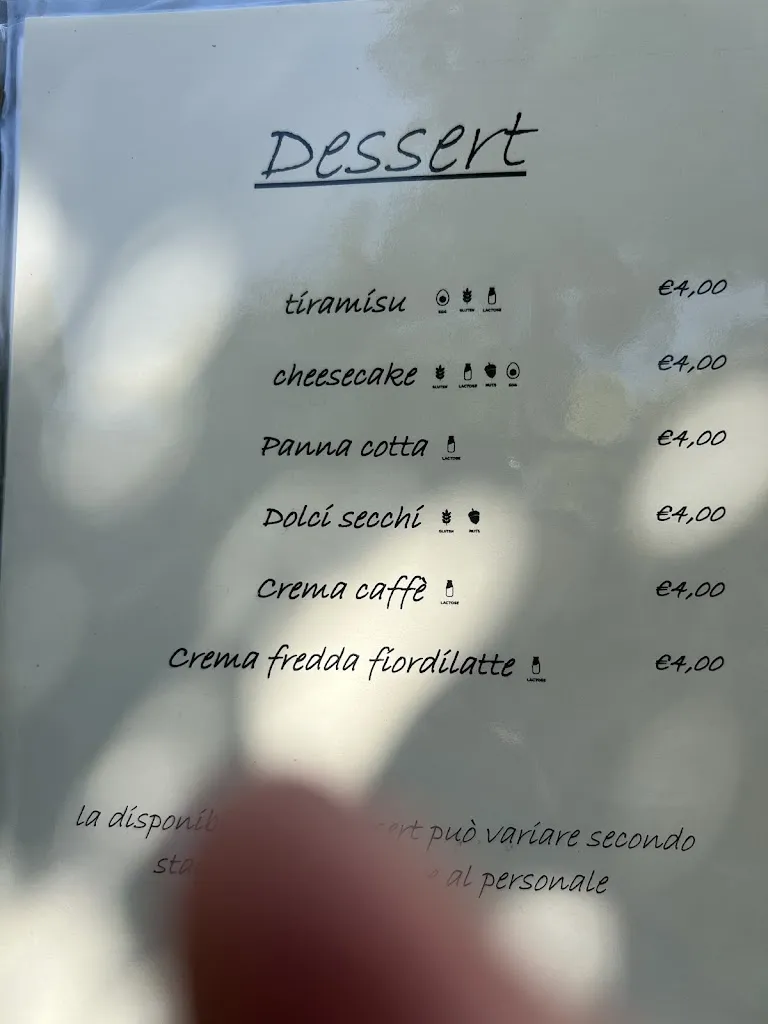 Dessert
tiramisu EGG GLUTEN LACTOSE €4,00
cheesecake GLUTEN LACTOSE NUTS EGG €4,00
Panna cotta LACTOSE €4,00
Dolci secchi GLUTEN NUTS €4,00
Crema caffè LACTOSE €4,00
Crema fredda fiordilatte LACTOSE €4,00
la può variare secondo
al personale